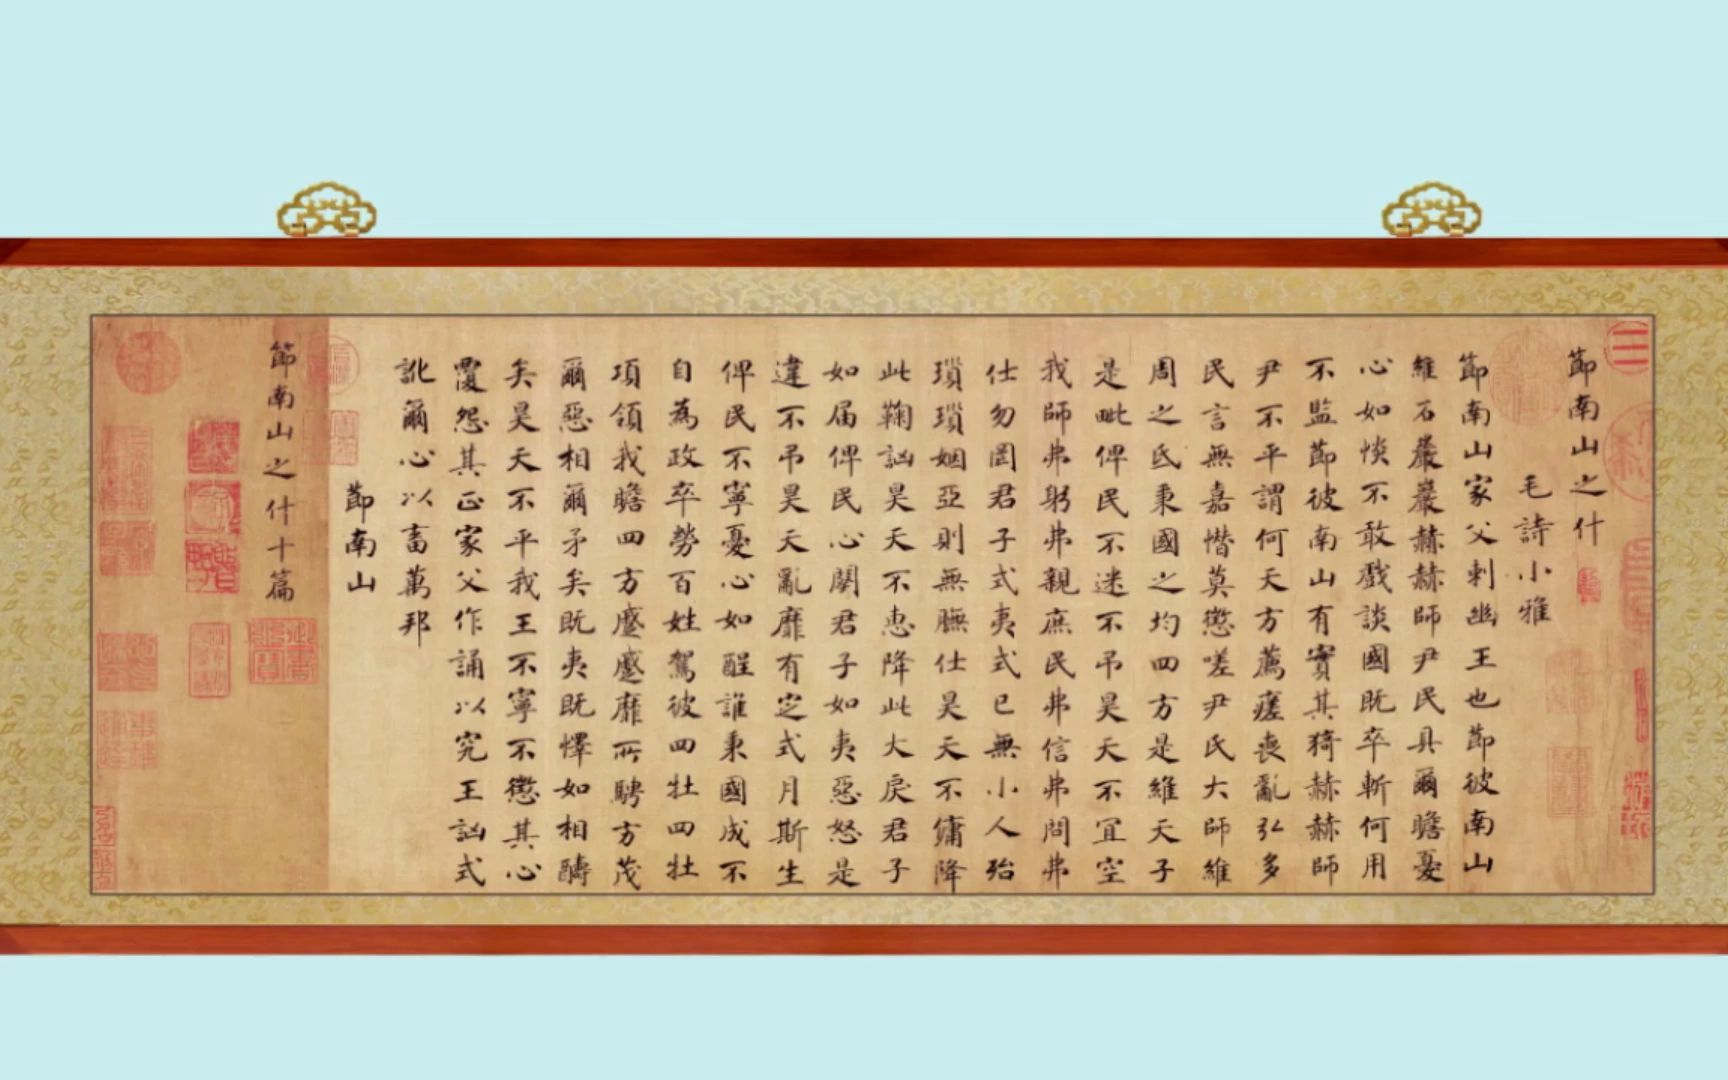 節南山之什
毛詩小雅
節南山家父刺幽王也節彼南山
維石巖巖赫赫師尹民具爾瞻憂
心如惔不敢戲談國既卒斬何用
不監節彼南山有實其猗赫赫師
尹不平謂何天方薦瘥喪亂弘多
民言無嘉憯莫懲嗟尹氏大師維
周之氐秉國之均四方是維天子
是毗俾民不迷不弔昊天不宜空
我師弗躬弗親庶民弗信弗問弗
仕勿罔君子式夷式已無小人殆
瑣瑣姻亞則無膴仕昊天不傭降
此鞠訩昊天不惠降此大戾君子
如届俾民心闋君子如夷惡怒是
違不弔昊天亂靡有定式月斯生
俾民不寧憂心如酲誰秉國成不
自為政卒勞百姓駕彼四牡四牡
項領我瞻四方蹙蹙靡所騁方茂
爾惡相爾矛矣既夷既懌如相醻
矣昊天不平我王不寧不懲其心
覆怨其正家父作誦以究王訩式
訛爾心以畜萬邦
節南山
節南山之什十篇